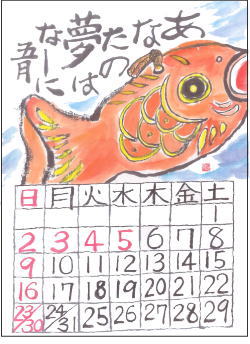 あなたの
夢は
なーに
五月
日 月 火 水 木 金 土
1
2 3 4 5 6 7 8
9 10 11 12 13 14 15
16 17 18 19 20 21 22
23/30 24/31 25 26 27 28 29